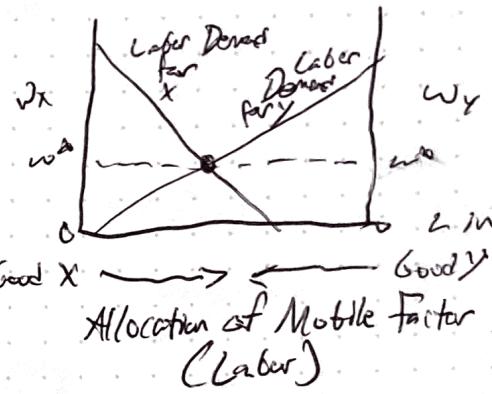 Labor Demand
for
X
Labor
Demand
for y
Wx
Wy
w*
w*
0
0
L in
Good X
Good y
Allocation of Mobile Factor
(Labor)